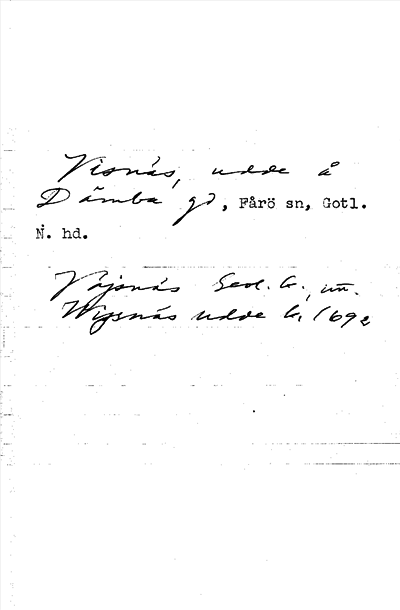 Visnäs, udde å
Dämba gd, Fårö sn, Gotl.
N. hd.
Vajsnäs Geol. k.,
Wijsnäs udde k. 1692